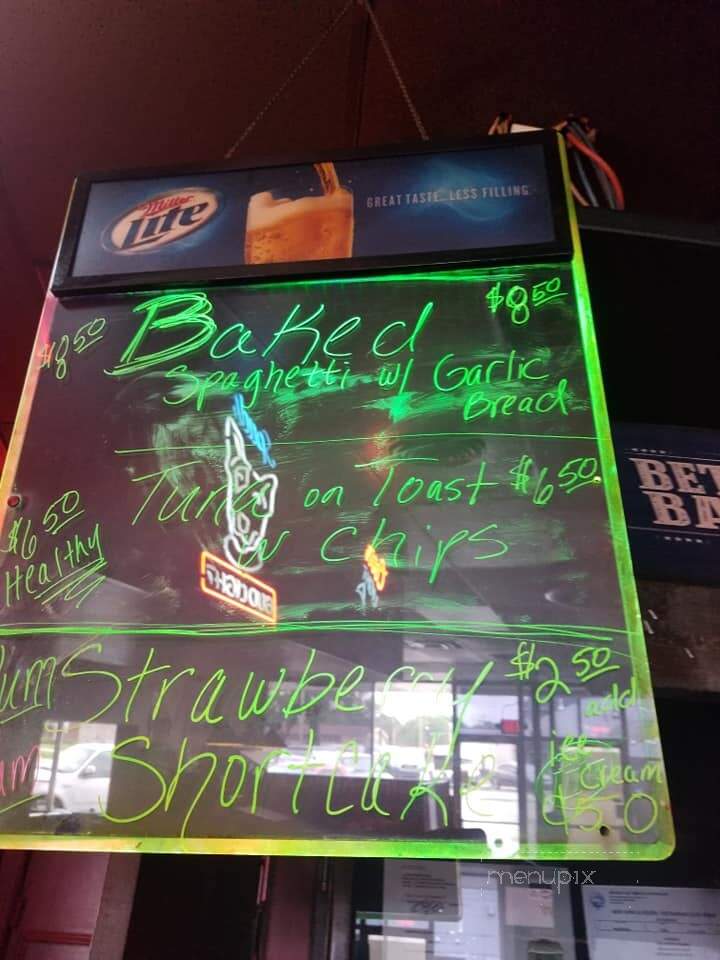 Miller
Lite
GREAT TASTE...LESS FILLING
$8 50 Baked $8 50
Spaghetti w/ Garlic
Bread
Tuna on Toast $6 50
w chips
$6 50
Healthy
Strawberry $2 50
add
Shortcake ice
Cream
BET
BA
menupix